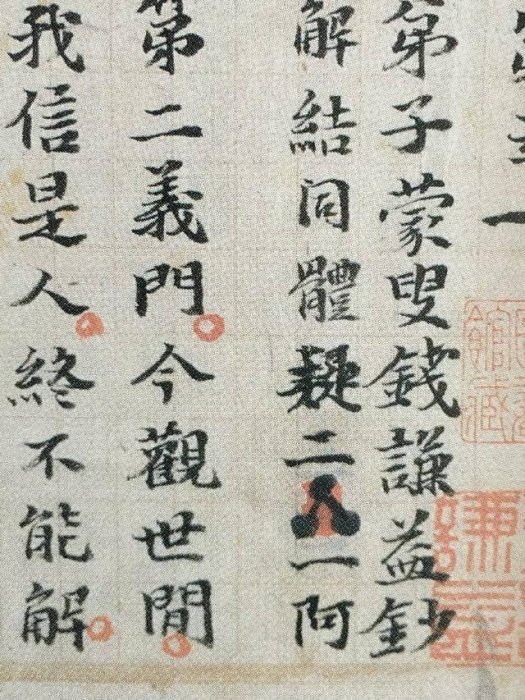 一
弟子蒙叟錢謙益鈔
解結同體疑二一阿
第二義門今觀世間
我信是人終不能解
館藏
謙益